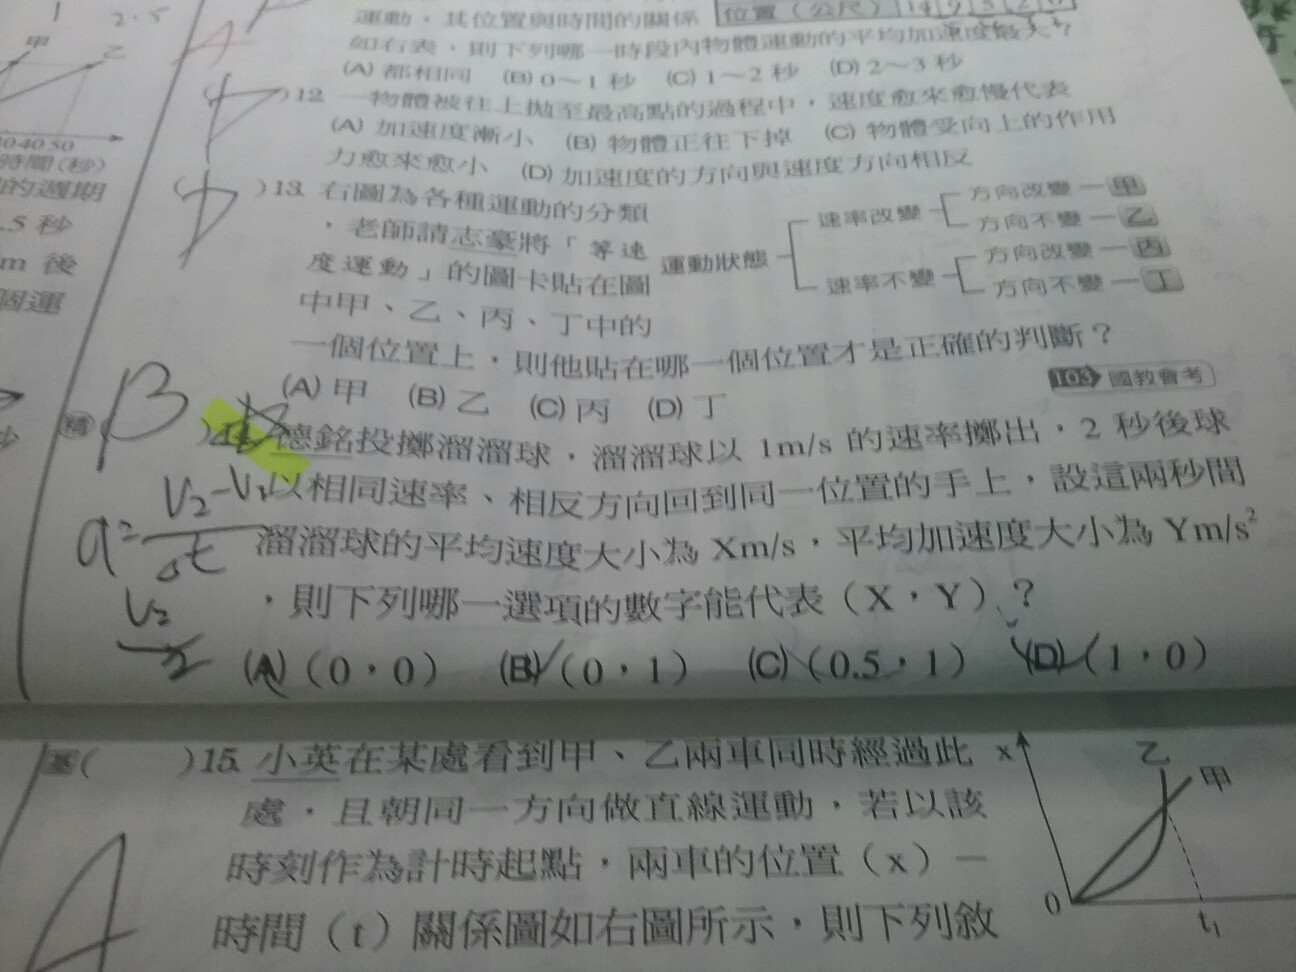 運動，其位置與時間的關係 位置（公尺） 14 9 5 2 0
如右表，則下列哪一時段內物體運動的平均加速度最大？
(A) 都相同 (B) 0～1 秒 (C) 1～2 秒 (D) 2～3 秒
)12. 一物體被往上拋至最高點的過程中，速度愈來愈慢代表
(A) 加速度漸小 (B) 物體正往下掉 (C) 物體受向上的作用
力愈來愈小 (D) 加速度的方向與速度方向相反
( )13. 右圖為各種運動的分類
，老師請志豪將「等速
度運動」的圖卡貼在圖
中甲、乙、丙、丁中的
一個位置上，則他貼在哪一個位置才是正確的判斷？
運動狀態
速率改變
方向改變 甲
方向不變 乙
速率不變
方向改變 丙
方向不變 丁
103 國教會考
(A) 甲 (B) 乙 (C) 丙 (D) 丁
精 B )14. 德銘投擲溜溜球，溜溜球以 1m/s 的速率擲出，2 秒後球
以相同速率、相反方向回到同一位置的手上，設這兩秒間
溜溜球的平均速度大小為 Xm/s，平均加速度大小為 Ym/s²
，則下列哪一選項的數字能代表（X，Y）？
(A)（0，0） (B)（0，1） (C)（0.5，1） (D)（1，0）
a = V₂-V₁
Δt
V₂
2
基( )15. 小英在某處看到甲、乙兩車同時經過此
處，且朝同一方向做直線運動，若以該
時刻作為計時起點，兩車的位置（x）－
時間（t）關係圖如右圖所示，則下列敘
A
x 乙 甲
0 t₁
甲
2.5
乙
40 50
時間(秒)
的週期
.5 秒
m 後
個運
秒
A